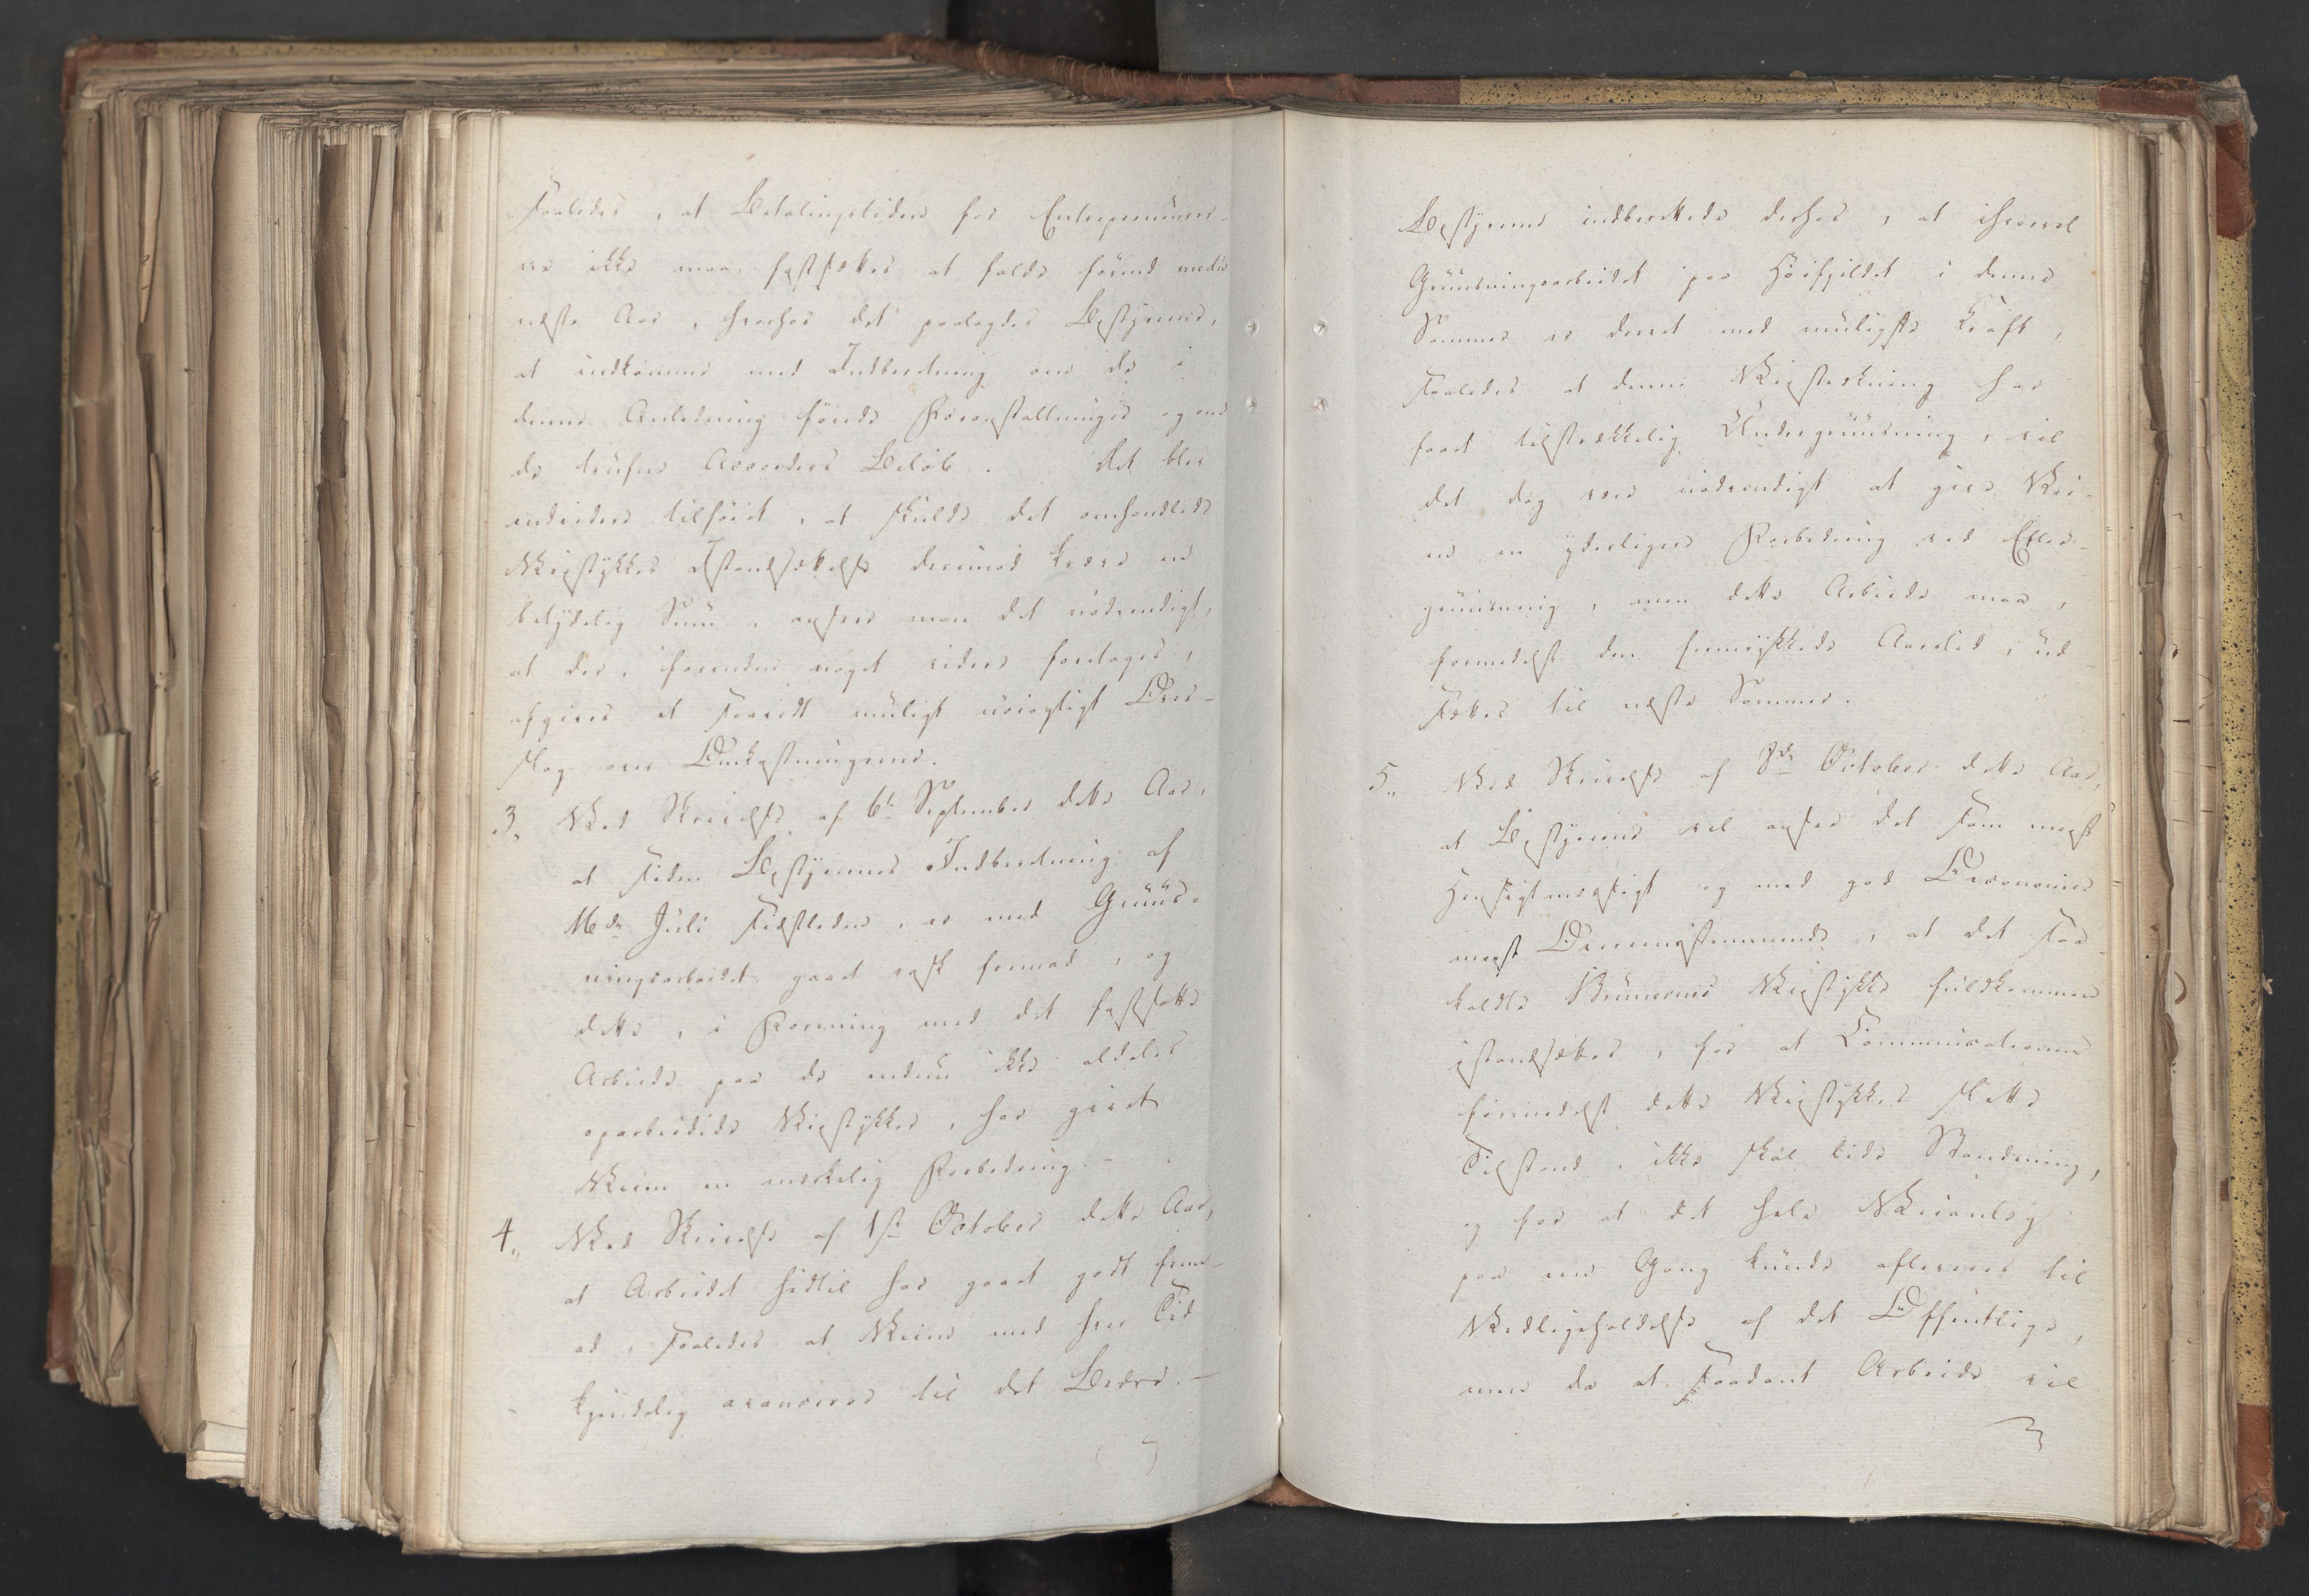 saaledes, at Betalingstiden for Entrepenneurer-
ne ikke maa fastsættes at falde førend medio
næste Aar, hvorhos det paalagdes Bestyrerne,
at indkomme med Indberetning om de i
denne Anledning fønde Foranstaltninger og om
de trufne Accorders Beløb. Det blev
endvidere tilføiet, at skulde det omhandlede
Veistykkes Istandsættelse derimod kræve en
betydelig Sum, ansees man det nødvendigt,
at der, forinden noget videre foretages,
afgives et saavidt muligt nøiagtigt Over-
slag over Omkostningerne.
3. Ved Skrivelse af 6te September dette Aar,
at siden Bestyrernes Indberetning af
16de Juli sidstleden, er med Gruus-
ningsarbeidet gaaet rask fremad, og
dette, i Forening med det fastsatte
Arbeide paa de endnu ikke aldeles
oparbeidede Veistykker, har givet
Veien en mærkelig Forbedring. -
4. Ved Skrivelse af 1ste October dette Aar,
at Arbeidet hidtil har gaaet godt frem-
ad, saaledes at Veien med hver Tid
kjendelig avancerer til det Bedre. -
Bestyrerne indberettede derhos, at ihvorvel
Gruusningsarbeidet paa Høifjeldet i denne
Sommer er drevet med muligste Kraft,
saaledes at denne Veistrækning har
faaet tilstrækkelig Undergruusning, vil
det dog være nødvendigt at give Vei-
en en yderligere Forbedring ved Efter-
gruusning, men dette Arbeide maa,
formedelst den fremrykkede Aarstid, ud-
sættes til næste Sommer.
5. Ved Skrivelse af 8de October dette Aar,
at Bestyrerne vel ansee det som meest
Hensigtmæssigt og med god Oeconomie
meest Overeensstemmende, at det saa-
kaldte Veistykke fuldkommen
istandsættes, for at Communicationen
formedelst dette Veistykkes slette
Tilstand, ikke skal lide Standsning,
og for at det hele Veianlæg
paa een Gang kunde afleveres til
Vedligeholdelse af det Offentlige,
men da et saadant Arbeide vil